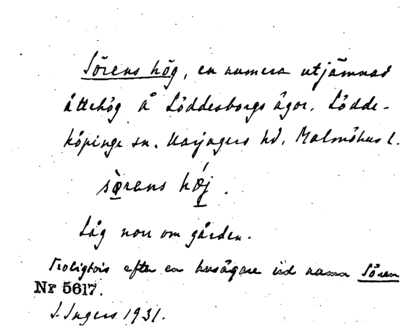 Sörens hög, en numera utjämnad
ättehög å Löddesborgs ägor, Lödde-
köpinge sn, Harjagers hd, Malmöhus l.
sörens hǿj.
Låg norr om gården.
Troligtvis efter en husägare vid namn Sören
Nr 5617.
I. Ingers 1931.